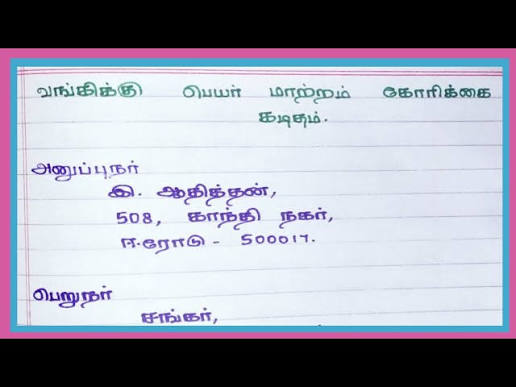 வங்கிக்கு பெயர் மாற்றம் கோரிக்கை
கடிதம்.
அனுப்புநர்
இ. ஆதித்தன்,
508, காந்தி நகர்,
ஈ.ரோடு - 500017.
பெறுநர்
சங்கர்,